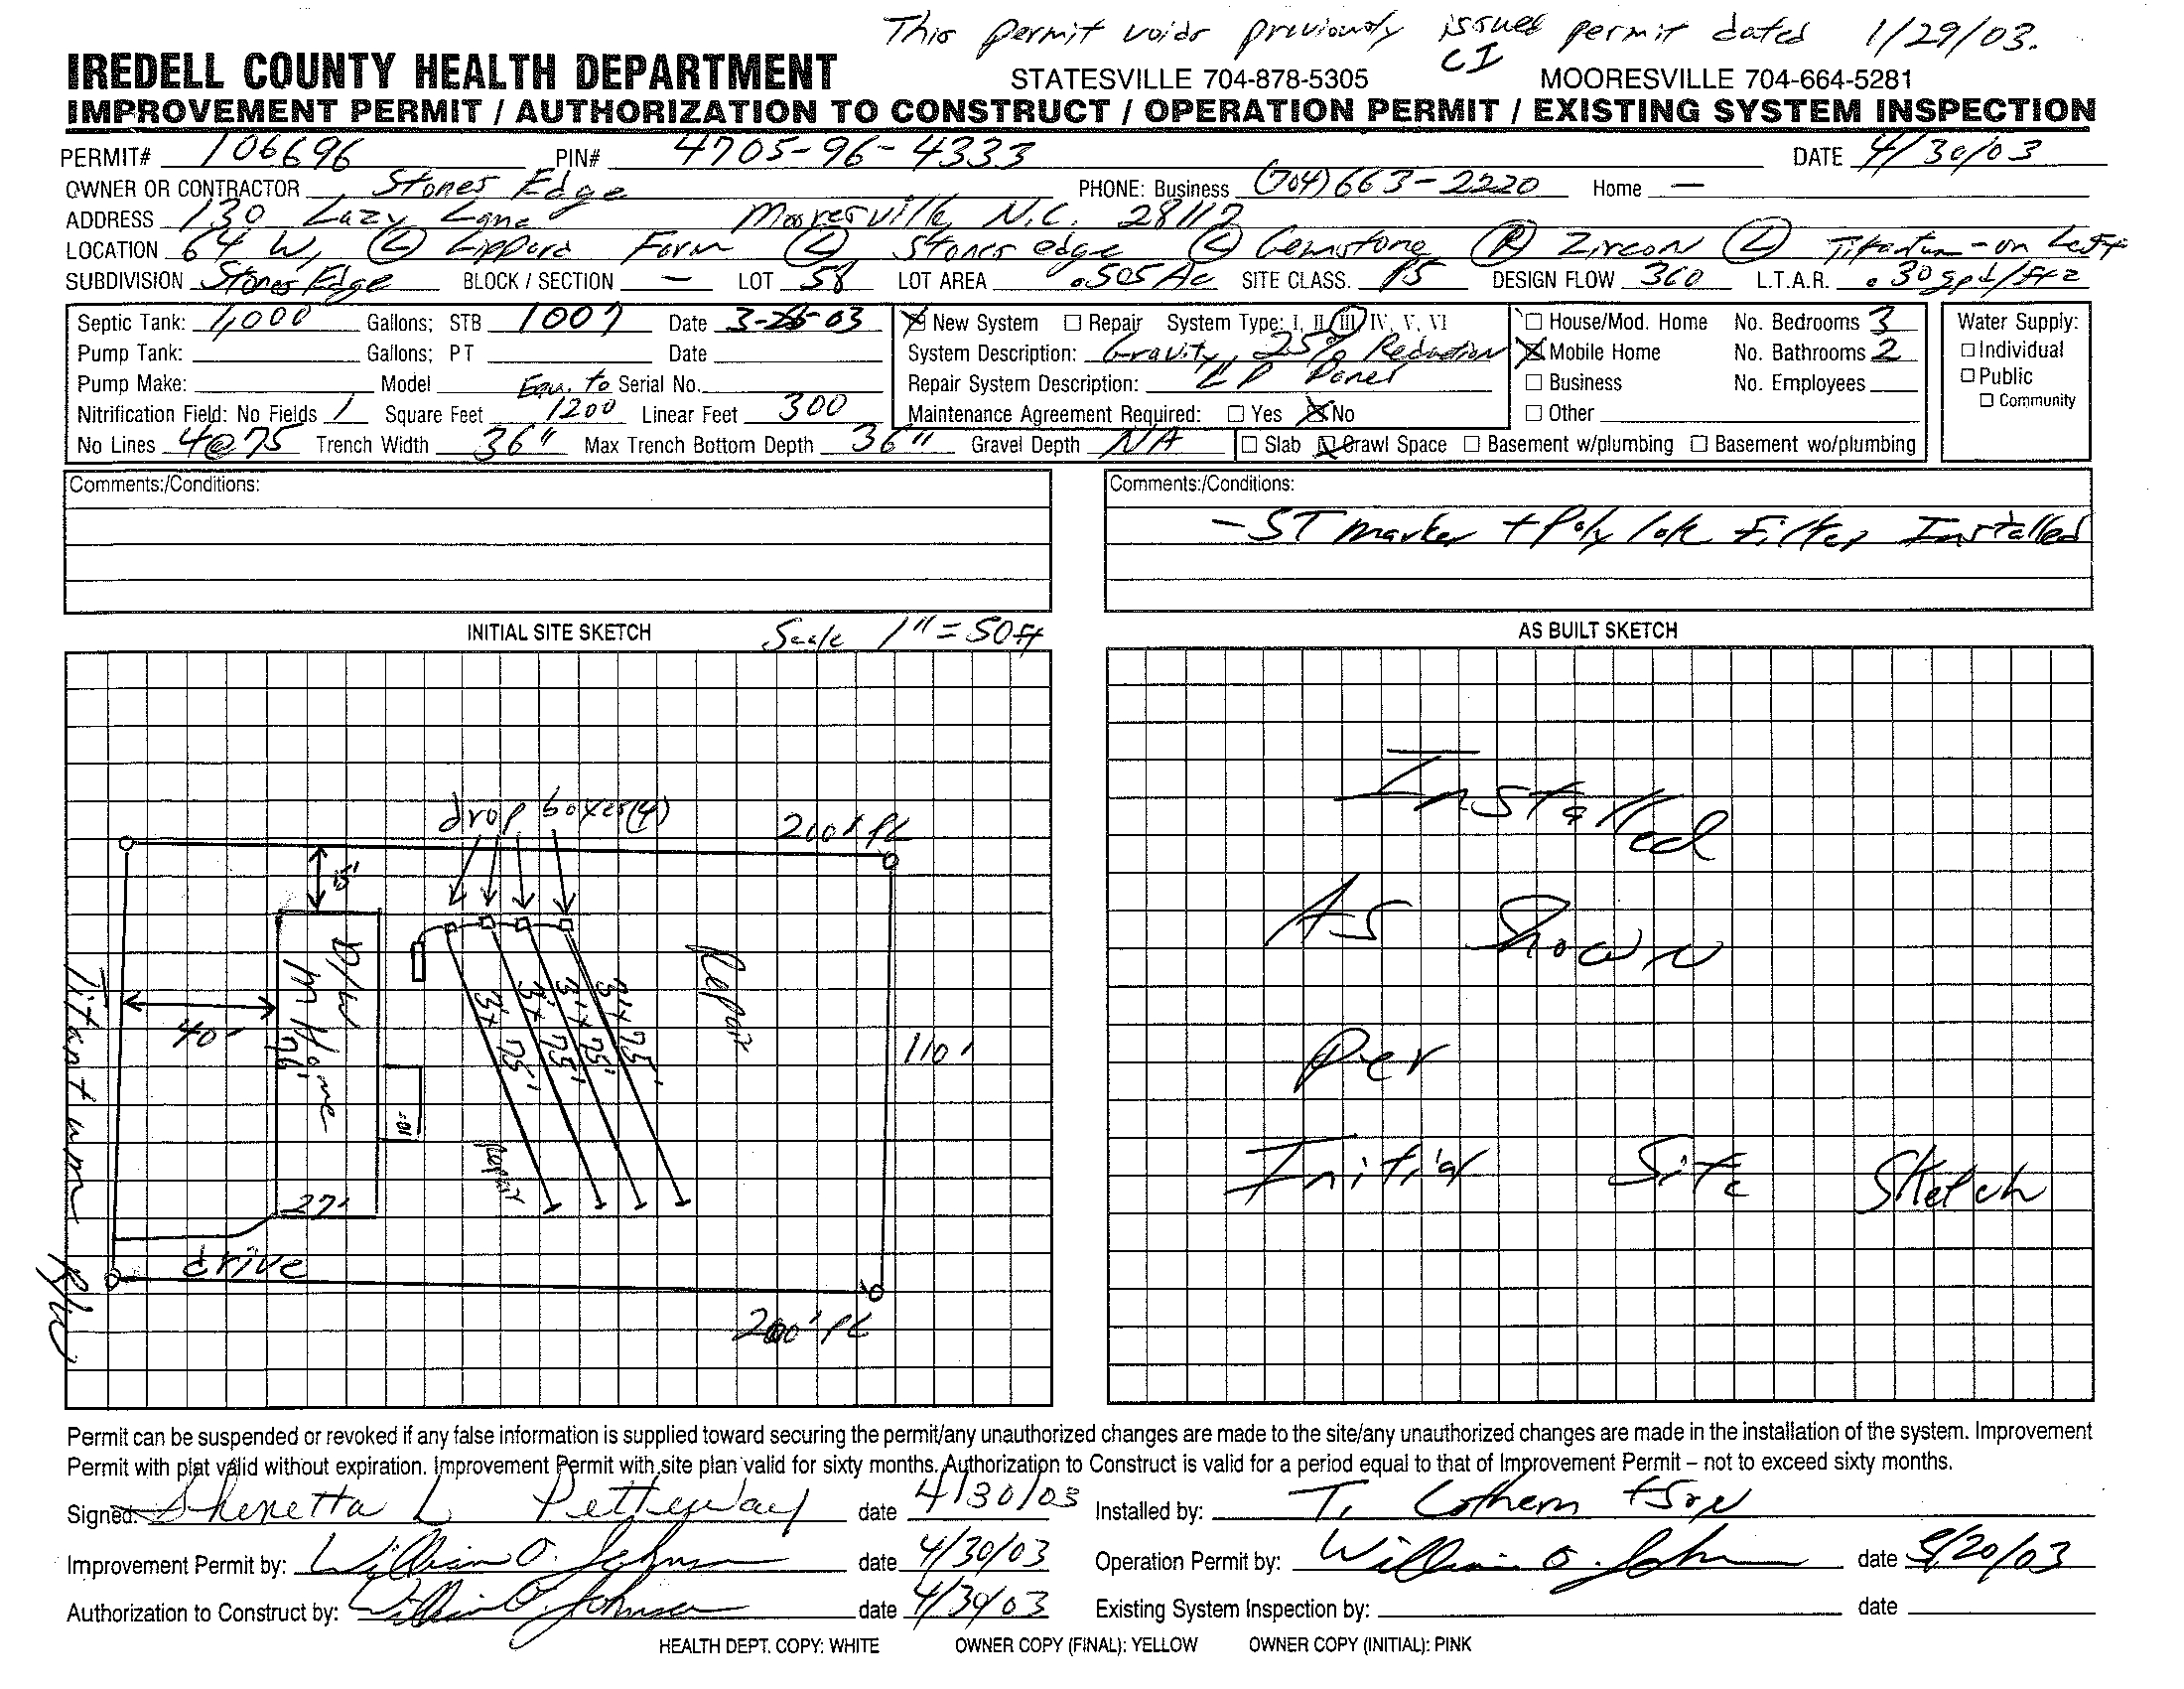 This permit voids previously issued permit dated 1/29/03.
CI
IREDELL COUNTY HEALTH DEPARTMENT STATESVILLE 704-878-5305 MOORESVILLE 704-664-5281
IMPROVEMENT PERMIT / AUTHORIZATION TO CONSTRUCT / OPERATION PERMIT / EXISTING SYSTEM INSPECTION
PERMIT# 106696 PIN# 4705-96-4333 DATE 4/30/03
OWNER OR CONTRACTOR Stones Edge PHONE: Business (704) 663-2220 Home —
ADDRESS 130 Lazy Lane Mooresville, N.C. 28117
LOCATION 64 W, (L) Lippard Farm (L) Stones edge (L) Gemstone (R) Zircon (L) Titantum - on Left
SUBDIVISION Stones Edge BLOCK / SECTION — LOT 58 LOT AREA .505 Ac SITE CLASS. PS DESIGN FLOW 360 L.T.A.R. .30 gpd/ft2
Septic Tank: 1,000 Gallons; STB 1007 Date 3-26-03 New System Repair System Type: I, II, III, IV, V, VI House/Mod. Home No. Bedrooms 3 Water Supply:
Pump Tank: Gallons; PT Date System Description: Gravity, 25% Reduction Mobile Home No. Bathrooms 2 Individual
Pump Make: Model Equ. to Serial No. Repair System Description: Business No. Employees Public
Nitrification Field: No Fields 1 Square Feet 1200 Linear Feet 300 Maintenance Agreement Required: Yes No Other Community
No Lines 4@75 Trench Width 36" Max Trench Bottom Depth 36" Gravel Depth NA Slab Crawl Space Basement w/plumbing Basement wo/plumbing
Comments:/Conditions: Comments:/Conditions:
- ST marker + Poly lok Filter Installed
INITIAL SITE SKETCH Scale 1" = 50 ft AS BUILT SKETCH
drop boxes (4)
200' PL
15'
D/W
M Home
76'
40'
27'
10'
3'x 75'
3'x 75'
3'x 75'
3'x 75'
Repair
Repair
110'
Titantum R/W
drive
200' PL
Installed
As Shown
Per
Initial Site Sketch
Permit can be suspended or revoked if any false information is supplied toward securing the permit/any unauthorized changes are made to the site/any unauthorized changes are made in the installation of the system. Improvement
Permit with plat valid without expiration. Improvement Permit with site plan valid for sixty months. Authorization to Construct is valid for a period equal to that of Improvement Permit – not to exceed sixty months.
Signed: Shenetta L Petteway date 4/30/03 Installed by: T. Cothern + Son
Improvement Permit by: William O. Johnson date 4/30/03 Operation Permit by: William O. Johnson date /20/03
Authorization to Construct by: William O. Johnson date 4/30/03 Existing System Inspection by: date
HEALTH DEPT. COPY: WHITE OWNER COPY (FINAL): YELLOW OWNER COPY (INITIAL): PINK